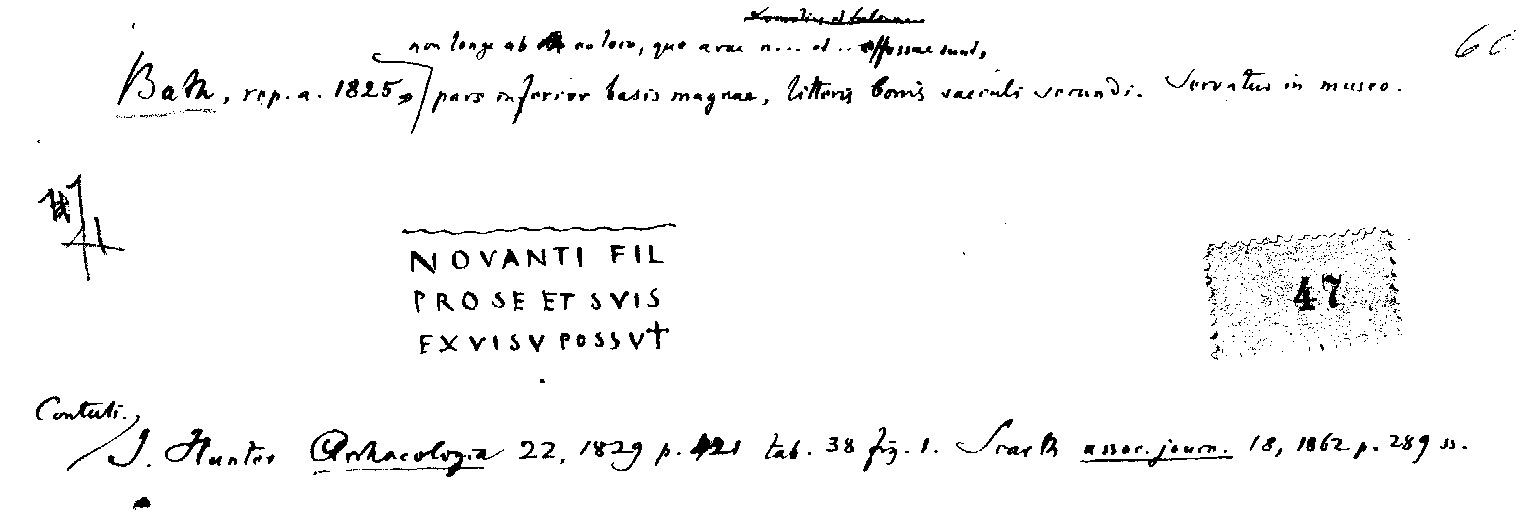 non longe ab eo loco, quo arae n... et .. effossae sunt,
60
Bath, rep. a. 1825, pars inferior basis magnae, litteris bonis saeculi secundi. Servatur in museo.
NOVANTI FIL
PRO SE ET SVIS
EX VISV POSSVT
47
Contuli.
J. Hunter Archaeologia 22, 1829 p. 421 tab. 38 fig. 1. Scarth assoc. journ. 18, 1862 p. 289 ss.